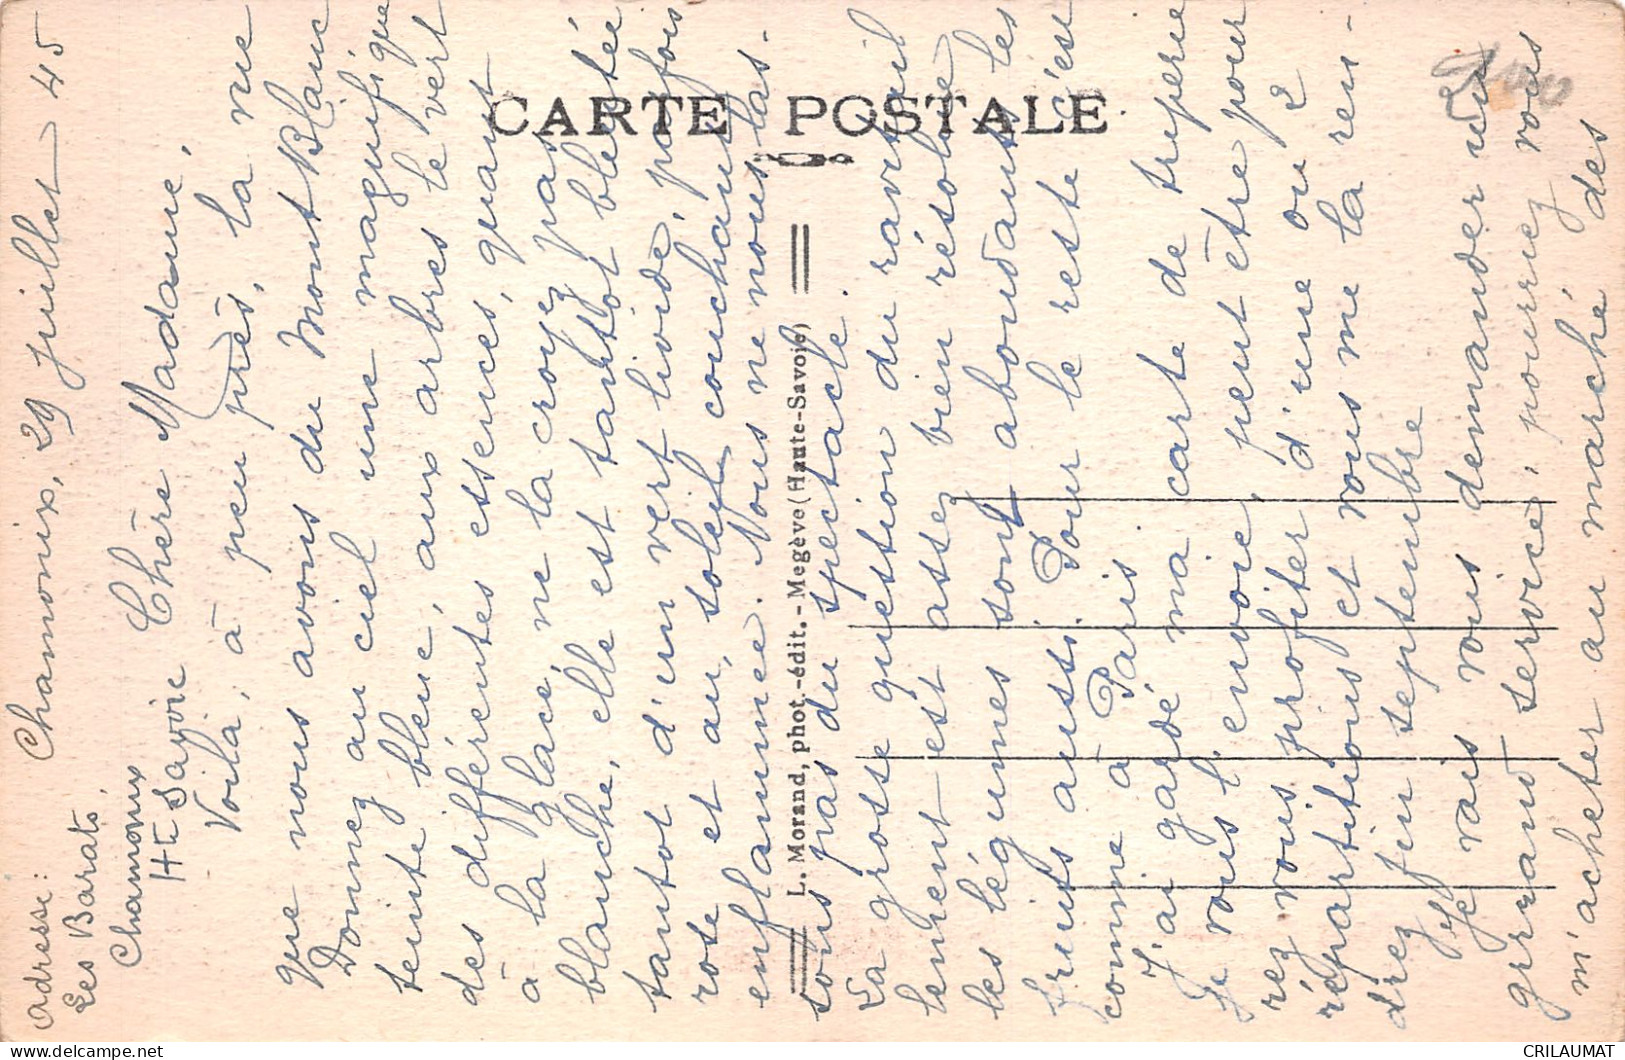 CARTE POSTALE
L. Morand, phot.-édit. - Megève (Haute-Savoie)
Adresse:
Les Barats,
Chamonix
Hte Savoie
Chamonix, 29 juillet 45
Chère Madame,
Voilà, à peu près, la vue
que nous avons du Mont Blanc
Donnez au ciel une magnifique
teinte bleue, aux arbres le vert
des différentes essences, quant
à la glace, ne la croyez pas
blanche, elle est tantôt bleutée
tantôt d'un vert livide, parfois
rose et au soleil couchant,
enflammée. Nous ne nous las-
sons pas du spectacle.
La grosse question du ravitail
lement est assez bien résolue
les légumes sont abondants les
fruits aussi. Pour le reste c'est
comme à Paris.
J'ai gardé ma carte de triperie
Je vous l'envoie, peut être pour
rez vous profiter d'une ou 2
répartitions et vous me la ren-
drez fin septembre
Je vais vous demander un
grand service, pourriez vous
m'acheter au marché des
CRILAUMAT